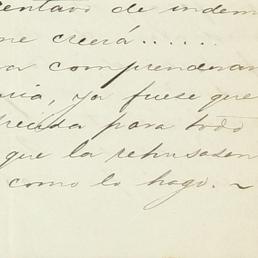 centavo de indem
me creerá......
ra comprenderan
, ya fuese que
para todo
que la rehusasen
como lo hago. ~